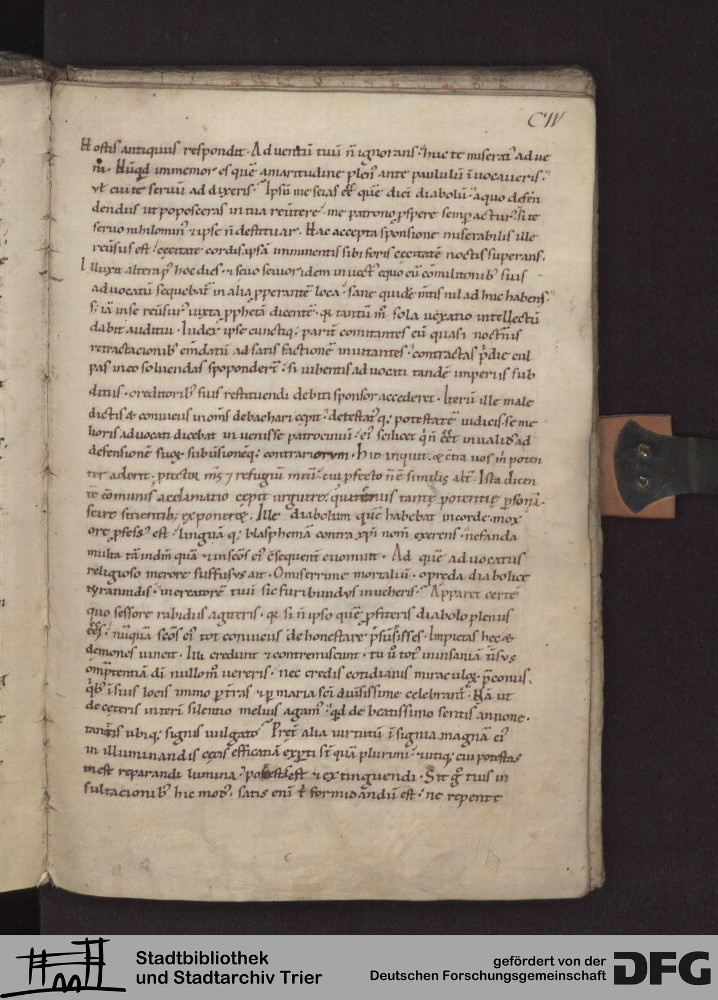 CIV
Hostis antiquus respondit. Adventū tuū ñ ignorans. huc te miserat adve
nī. Nūqd inmemor es quē amaritudine plen' ante paululū īvocaveris.
vt cui te servū addixeris. Ipsū me scias eēe quē dicī diabolū. a quo defen
dendus ut poposceras in tua revertere. me patrono pspere semp acturus. si te
servo nihilomin' & ipse ñ destituar. Hac accepta sponsione miserabilis ille
reversus est. cecitate cordis ipsā imminentis sibi foris cecitatē noctis superans.
Illuxit altera p' hoc dies. & sevo sevior idem invect' equo cū cōmilitonib' suis
advocatū sequebat in alia pperantē loca. sane quidē mtis nil adhuc habens.
s; iā in se reversur' iuxta pphetā dicentē. qr tantū m sola vexatio intellectū
dabit auditui. Iudex ipse cunctiq; parit comitantes eū quasi nocturnis
retractacionib' emdatū ad satisfactionē invitantes. contractas pdie cul
pas in eo solvendas spopondert. si iubentis advocati tandē imperiis sub
ditus. creditorib' suis restituendi debiti sponsor accederet. Iterū ille male
dictis & conviciis in oms debachari cepit. detestatq; potestatē iudicis. se me
lioris advocati dicebat invenisse patrociniū. ei' scilicet q ñ eēt invalid' ad
defensionē suor subversionēq; contrariorum. Hio inquit. & cetra vos in poten
ter aderit. ptector m's & refugiū meū. cui pfecto ñ ē similis alt'. Ista dicen
tē cōmunis acclamatio cepit urguere. quatenus tantę potentię psonā.
scire sitientib; exponeret. Ille diabolum quē habebat in corde. mox
ore pfess' est. linguāq; blasphemā contra xpm nom exerens. nefanda
multa tā in dm quā & in scos ei' csequent evomuit. Ad quē advocatus
religioso merore suffusus ait. O miserrime mortaliū. o preda diabolicę
tyrannidis. in creatorē tuū sic furibundus inveheris. Apparet certe
quo sessore rabidus agiteris. qr si ñ ipso quē pfiteris diabolo plenus
eēs. nūquā scos ei' tot conviciis dehonestare psūsisses. Impietas hec &
demones vincit. Illi credunt & contremiscunt. tu ū tot in insaniā vsus
omptentiā di nullom vereris. nec credis cotidianis miraculor pconiis.
qb' ī suis locis immo p tras & p maria sci diversissime celebrant. Nā ut
de ceteris interī silentio melius agam. qd de beatissimo sentis annone.
tantis ubiq; signis vulgato. Pret alia virtutū īsignia magnā ei'
in illuminandis cecis efficatiā expti st quā plurimi. utiq; cui potestas
inest reparandi lumina. potestas est & extinguendi. Sit g tuis in
sultacionib' hic mod'. satis enī t formidandū est. ne repente
Stadtbibliothek
und Stadtarchiv Trier
gefördert von der
Deutschen Forschungsgemeinschaft
DFG